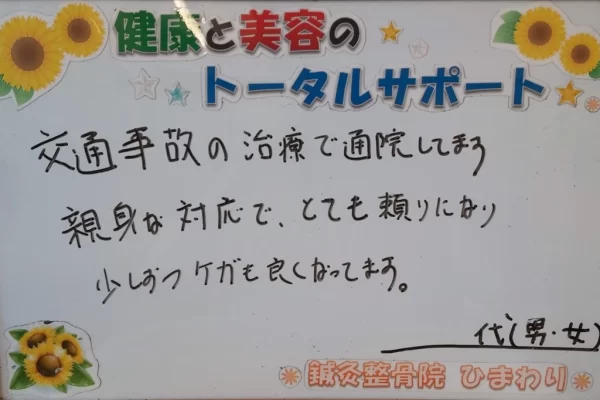 健康と美容の
トータルサポート
交通事故の治療で通院してます
親身な対応で、とても頼りになり
少しずつケガも良くなってます。
代(男・女)
鍼灸整骨院 ひまわり